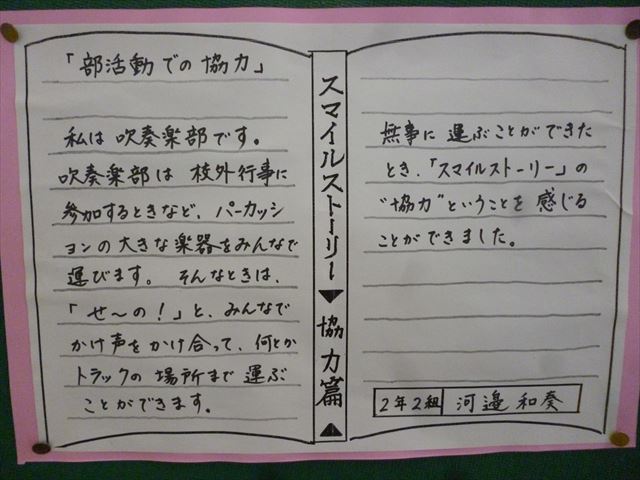 「部活動での協力」
私は吹奏楽部です。
吹奏楽部は校外行事に
参加するときなど、パーカッシ
ョンの大きな楽器をみんなで
運びます。そんなときは、
「せ〜の！」と、みんなで
かけ声をかけ合って、何とか
トラックの場所まで運ぶ
ことができます。
スマイルストーリー▼協力篇▲
無事に運ぶことができた
とき、「スマイルストーリー」の
“協力”ということを感じる
ことができました。
2年2組 河邉和奏